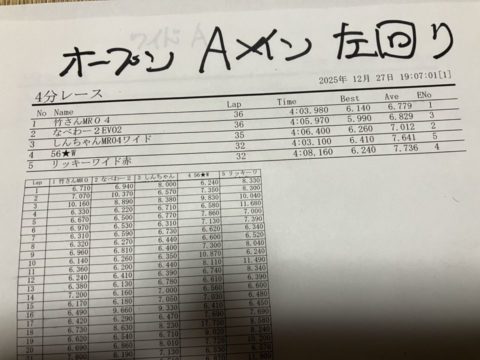 オープン Aメイン 左回り
2025年 12月 27日 19:07:01[1]
4分レース
No Name Lap Time Best Ave ENo
1 竹さんMR04 36 4:03.980 6.140 6.779 1
2 なべわー2EVO2 36 4:05.970 5.990 6.829 3
3 しんちゃんMR04ワイド 35 4:06.400 6.260 7.012 2
4 56★W 32 4:03.100 6.410 7.641 5
5 リッキーワイド赤 32 4:08.160 6.240 7.736 4
Lap 1 竹さんMR0 2 なべわー2 3 しんちゃん 4 56★W 5 リッキーワ
1 6.710 6.940 8.000 6.240 8.330
2 7.070 10.370 6.570 7.350 8.300
3 10.160 8.890 8.380 9.830 10.040
4 6.330 6.220 6.710 6.580 11.680
5 6.670 6.500 6.770 7.860 7.000
6 6.970 6.530 6.310 7.130 7.390
7 6.310 6.590 6.730 6.620 6.340
8 6.320 6.270 6.440 6.600 6.520
9 6.960 6.810 6.400 7.300 8.040
10 6.140 6.350 10.870 6.240
11 6.360 6.200 6.440 8.110 11.490
12 6.240 6.410 6.390 6.740 8.340
13 6.380 6.130 6.780
14 7.200 6.160
15 6.170 6.180 7.050
16 6.490 9.660 9.330
17 6.420 6.290 6.470
18 6.730 8.630 8.230
19 6.620 6.540
20
21